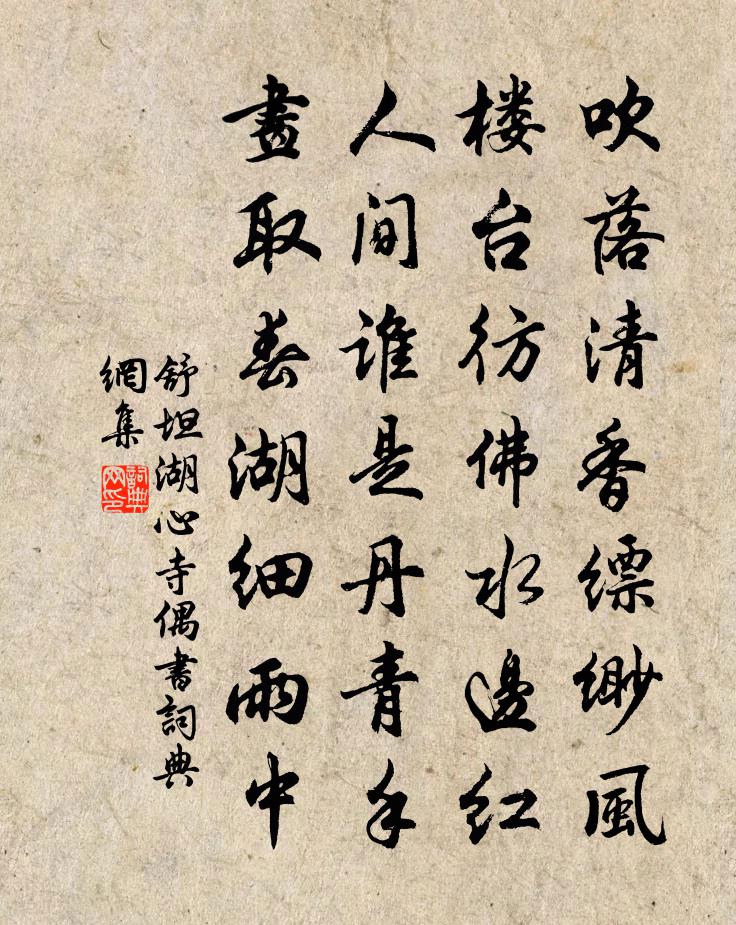 吹落清香缥缈風
楼台彷佛水邊红
人间谁是丹青手
畫取春湖细雨中
舒坦湖心寺偶書詞典
網集
詞典
网印